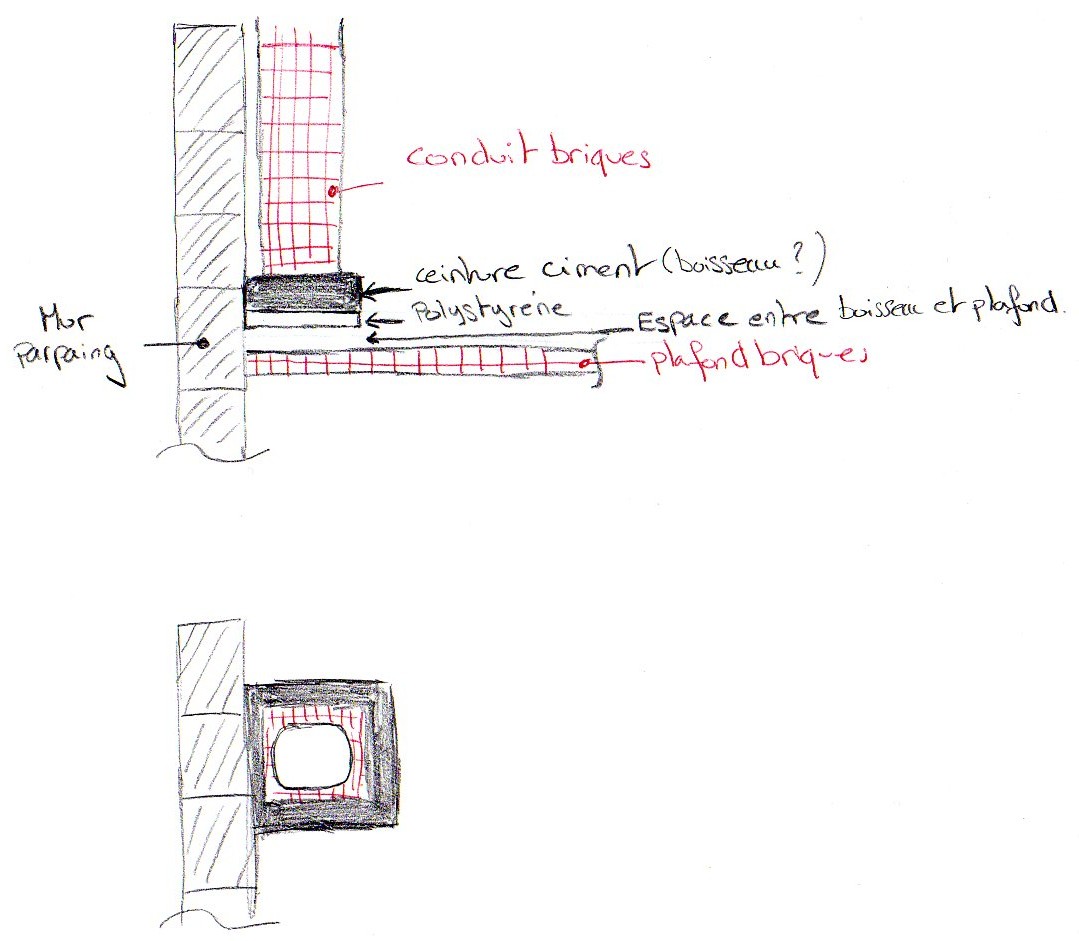 conduit briques
ceinture ciment (boisseau ?)
Polystyrène
Espace entre boisseau et plafond.
Mur
parpaing
plafond briques